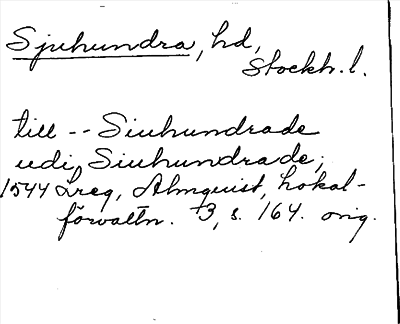 Sjuhundra, hd,
Stockh. l.
till -- Siuhundrade
udi Siuhundrade;
1544 Lreg, Almquist, Lokal-
förvaltn. 3, s. 164. orig.